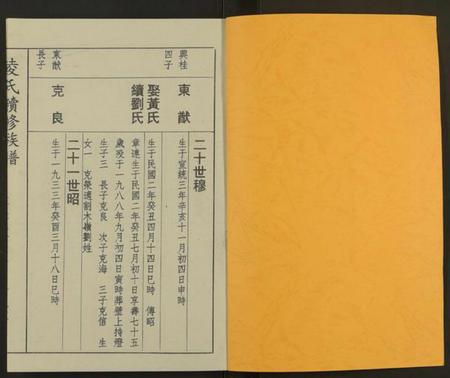 二十世穆
興桂
四子
東猷
生于宣統三年辛亥十一月初四日申時
娶黃氏
生于民國二年癸丑四月十四日巳時 傳昭
續劉氏
章連生于民國二年癸丑七月初十日享壽七十五
歲歿于一九八八年九月初四日寅時葬壁上掛燈
生子三 長子克良 次子克海 三子克信 生
女一 克榮適割木嶺劉姓
二十一世昭
東猷
長子
克良
生于一九三三年癸酉三月十八日巳時
凌氏續修族譜